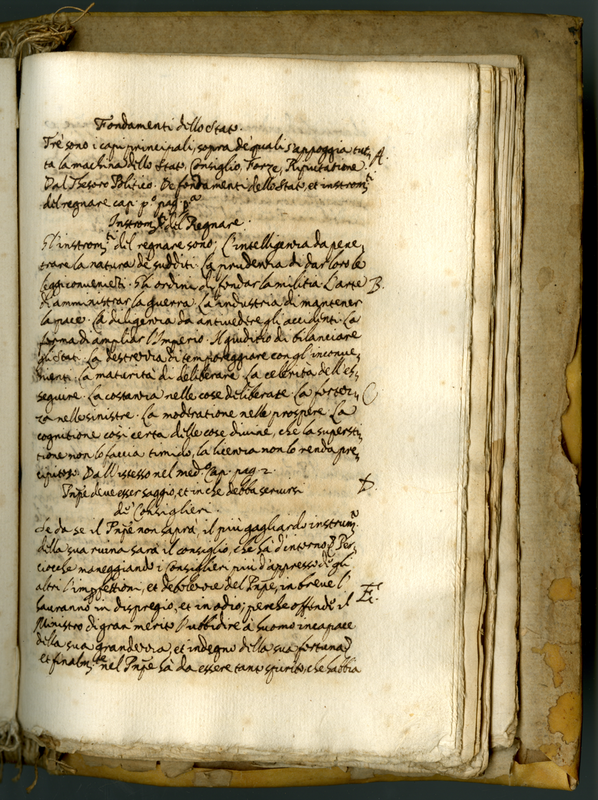 Fondamenti dello Stato.
Trè sono i capi principali, sopra de quali s'appoggia tut, A.
ta la machina dello Stato. Consiglio, Forze, Riputatione.
Dal Thesoro Politico. De fondamenti dello Stato, et instromti
del regnare cap. po. pag. pa.
Instromti del Regnare.
Gl'instromti del regnare sono; L'intelligenza da pene,
trare la natura de sudditi. La prudenza di dar loro le
leggi convenienti. Gli ordini di fondar la militia. L'arte B.
d'amministrar la guerra. La industria di mantener
la pace. La diligenza da antivedere gli accidenti. La
forma di ampliar l'Imperio. Il giuditio di bilanciare
gli Stati. La destrezza di temporeggiare con gl'inconve,
nienti. La maturità di deliberare. La celerità dell'es,
seguire. La costanza nelle cose deliberate. La fortez, C
za nelle sinistre. La moderatione nelle prospere. La
cognitione così certa delle cose divine, che la supersti,
tione non lo faccia timido, la licenza non lo renda pre,
cipitoso. Dall'istesso nel medmo cap. pag. 2.
Pnpe deve esser saggio, et in che debba servirsi D.
de Consiglieri.
Se da se il Pnpe non saprà, il più gagliardo instrumo
della sua ruina sarà il consiglio, che hà d'intorno. Per
cioche maneggiando i Consiglieri più d'appresso de gli
altri l'impfettioni, et debolezze del Pnpe, in breve l'
hauranno in dispregio, et in odio; perche offende il E.
Ministro di gran merito l'ubbidire à huomo incapace
della sua grandezza, et indegno della sua fortuna,
et finalmte nel Pnpe hà da essere tanto spirito, che habbia